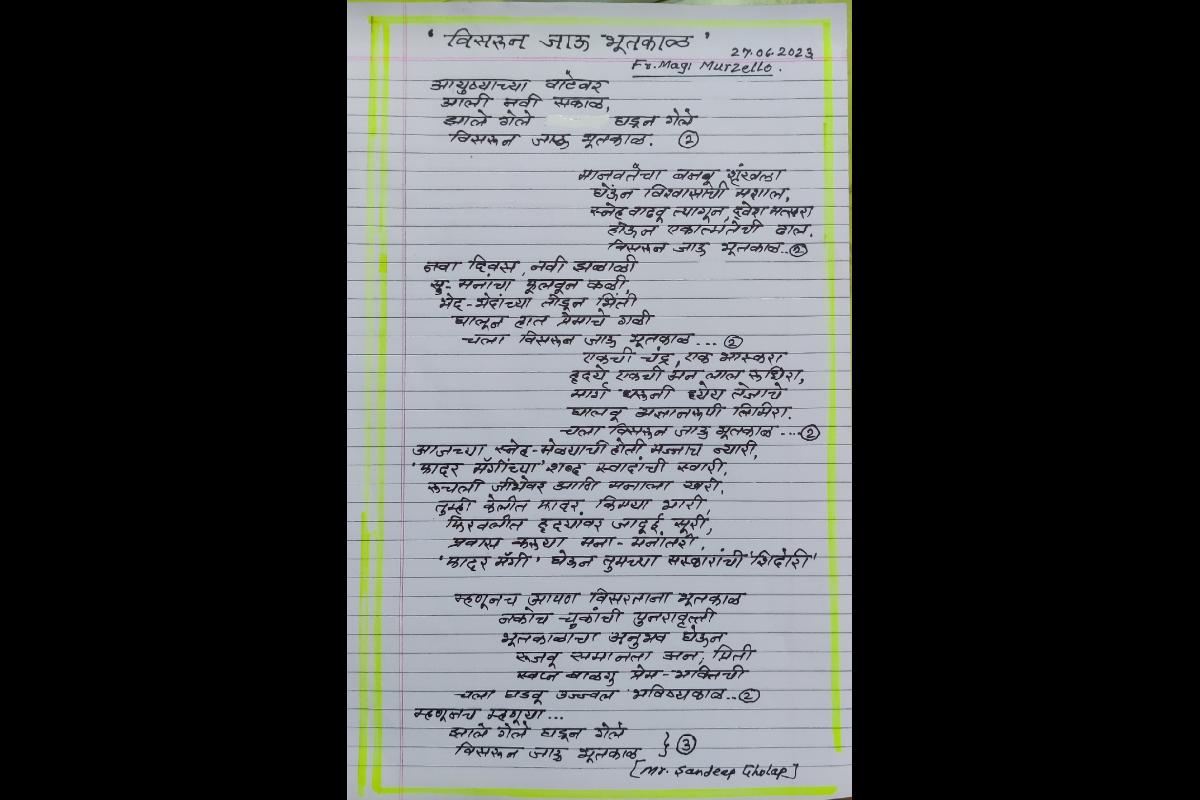 ' विसरून जाऊ भूतकाळ '
27.06.2023
Fr. Magi Murzello.
आयुष्याच्या वाटेवर
आली नवी सकाळ,
झाले गेले घडून गेले
विसरून जाऊ भूतकाळ. ②
मानवतेचा बनवू शृंखला
घेऊन विश्वासाची मशाल,
स्नेह वाढवू त्यागून, द्वेश मत्सरा
होऊन एकात्मतेची ढाल.
विसरून जाऊ भूतकाळ..②
नवा दिवस, नवी झळाळी
सु-मनांचा फूलवून कळी,
भेद-भेदांच्या तोडून भिंती
घालून हात प्रेमाचे गळी
चला विसरून जाऊ भूतकाळ ... ②
एकची चंद्र, एक भास्करा
हृदये एकची अन लाल रुधिरा,
मार्ग धरूनी ध्येय तेजाचे
घालवू अज्ञानरूपी तिमिरा.
चला विसरून जाऊ भूतकाळ ...②
आजच्या स्नेह-मेळ्याची होती मज्जाच न्यारी,
'फादर मॅगींच्या' शब्द स्वादांची स्वारी,
रूचली जीभेवर आणि मनाला खरी,
तुम्ही केलीत फादर, किमया भारी,
फिरवलीत हृदयांवर जादूई सूरी,
प्रवास करूया मना-मनांतरी,
'फादर मॅगी' घेऊन तुमच्या सस्कारांची 'शिदोरी'
म्हणूनच आपण विसरताना भूतकाळ
नकोच चुकांची पुनरावृत्ती
भूतकाळाचा अनुभव घेऊन
रूजवू समानता अन, प्रिती
स्वप्न बाळगु प्रेम-भक्तिची
चला घडवू उज्ज्वल भविष्यकाळ..②
म्हणूनच म्हणूया...
झाले गेले घडून गेले
विसरून जाऊ भूतकाळ } ③
[Mr. Sandeep Gholap]